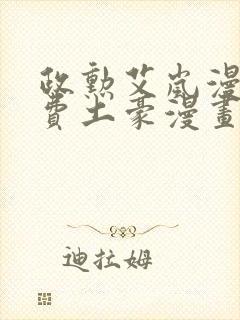 政勳艾嵐漫
費土豪漫畫
迪拉姆